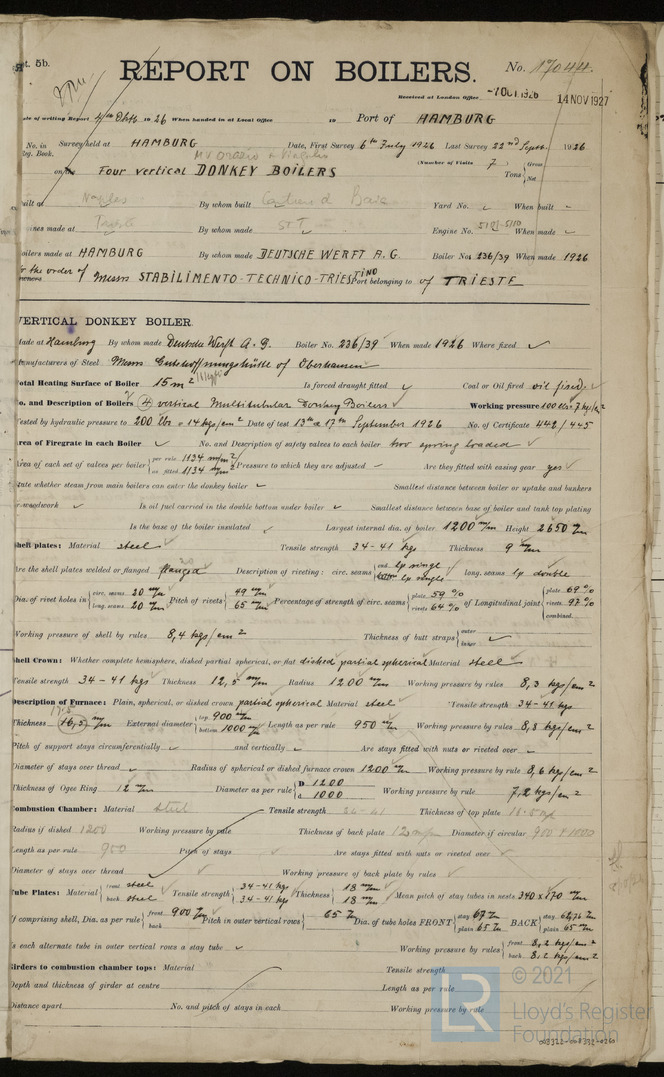 pt. 5b.
REPORT ON BOILERS.
No. 17044.
Received at London Office -7 OCT 1926
14 NOV 1927
ate of writing Report 4th Octr 1926 When handed in at Local Office 19 Port of HAMBURG
No. in Survey held at HAMBURG Date, First Survey 6th July 1926 Last Survey 22nd Sept. 1926
eg. Book. (Number of Visits 7)
on the Four vertical DONKEY BOILERS Tons Gross Net
uilt at Naples By whom built Yard No. When built
ines made at By whom made STT Engine No. When made
oilers made at HAMBURG By whom made DEUTSCHE WERFT A.G. Boiler No. 236/39 When made 1926
for the order of Messrs STABILIMENTO-TECHNICO-TRIESTINO Port belonging to of TRIESTE
VERTICAL DONKEY BOILER.
Made at Hamburg By whom made Deutsche Werft A.G. Boiler No. 236/39 When made 1926 Where fixed
anufacturers of Steel Messrs Gutehoffnungshütte of Oberhausen
Total Heating Surface of Boiler 15 m² Is forced draught fitted Coal or Oil fired oil fired
No. and Description of Boilers (4) vertical Multitubular Donkey Boilers Working pressure 100 lbs = 7 kg/cm²
Tested by hydraulic pressure to 200 lbs = 14 kgs/cm² Date of test 13th & 17th September 1926 No. of Certificate 442/445
Area of Firegrate in each Boiler No. and Description of safety valves to each boiler two spring loaded
Area of each set of valves per boiler per rule 1134 m/m² as fitted 1134 m/m² Pressure to which they are adjusted Are they fitted with easing gear yes
tate whether steam from main boilers can enter the donkey boiler Smallest distance between boiler or uptake and bunkers
r woodwork Is oil fuel carried in the double bottom under boiler Smallest distance between base of boiler and tank top plating
Is the base of the boiler insulated Largest internal dia. of boiler 1200 m/m Height 2650 m/m
Shell plates: Material steel Tensile strength 34-41 kgs Thickness 9 m/m
Are the shell plates welded or flanged flanged Description of riveting: circ. seams end lp single inter lp single long. seams lp double
Dia. of rivet holes in circ. seams 20 m/m long. seams 20 m/m Pitch of rivets 49 m/m 65 m/m Percentage of strength of circ. seams plate 59 % rivets 64 % of Longitudinal joint plate 69 % rivets 97 % combined
Working pressure of shell by rules 8,4 kgs/cm² Thickness of butt straps outer inner
Shell Crown: Whether complete hemisphere, dished partial spherical, or flat dished partial spherical Material steel
Tensile strength 34-41 kgs Thickness 12,5 m/m Radius 1200 m/m Working pressure by rules 8,3 kgs/cm²
Description of Furnace: Plain, spherical, or dished crown partial spherical Material steel Tensile strength 34-41 kgs
Thickness 16,5 m/m External diameter top 900 m/m bottom 1000 m/m Length as per rule 950 m/m Working pressure by rules 8,8 kgs/cm²
Pitch of support stays circumferentially and vertically Are stays fitted with nuts or riveted over
Diameter of stays over thread Radius of spherical or dished furnace crown 1200 m/m Working pressure by rule 8,6 kgs/cm²
Thickness of Ogee Ring 12 m/m Diameter as per rule D 1200 d 1000 Working pressure by rule 7,2 kgs/cm²
Combustion Chamber: Material steel Tensile strength 34-41 Thickness of top plate 18.5 m/m
Radius if dished 1200 Working pressure by rule Thickness of back plate 12 m/m Diameter if circular 900 & 1000
Length as per rule 950 Pitch of stays Are stays fitted with nuts or riveted over
Diameter of stays over thread Working pressure of back plate by rules
Tube Plates: Material front steel back steel Tensile strength 34-41 kgs 34-41 kgs Thickness 18 m/m 18 m/m Mean pitch of stay tubes in nests 340 x 170 m/m
If comprising shell, Dia. as per rule front 900 m/m back Pitch in outer vertical rows 65 m/m Dia. of tube holes FRONT stay 67 m/m plain 65 m/m BACK stay m/m plain 65 m/m
Is each alternate tube in outer vertical rows a stay tube Working pressure by rules front 8,2 kgs/cm² back 8,2 kgs/cm²
Girders to combustion chamber tops: Material Tensile strength
Depth and thickness of girder at centre Length as per rule
Distance apart No. and pitch of stays in each Working pressure by rules
LR © 2021
Lloyd's Register
Foundation
008322-008332-0260